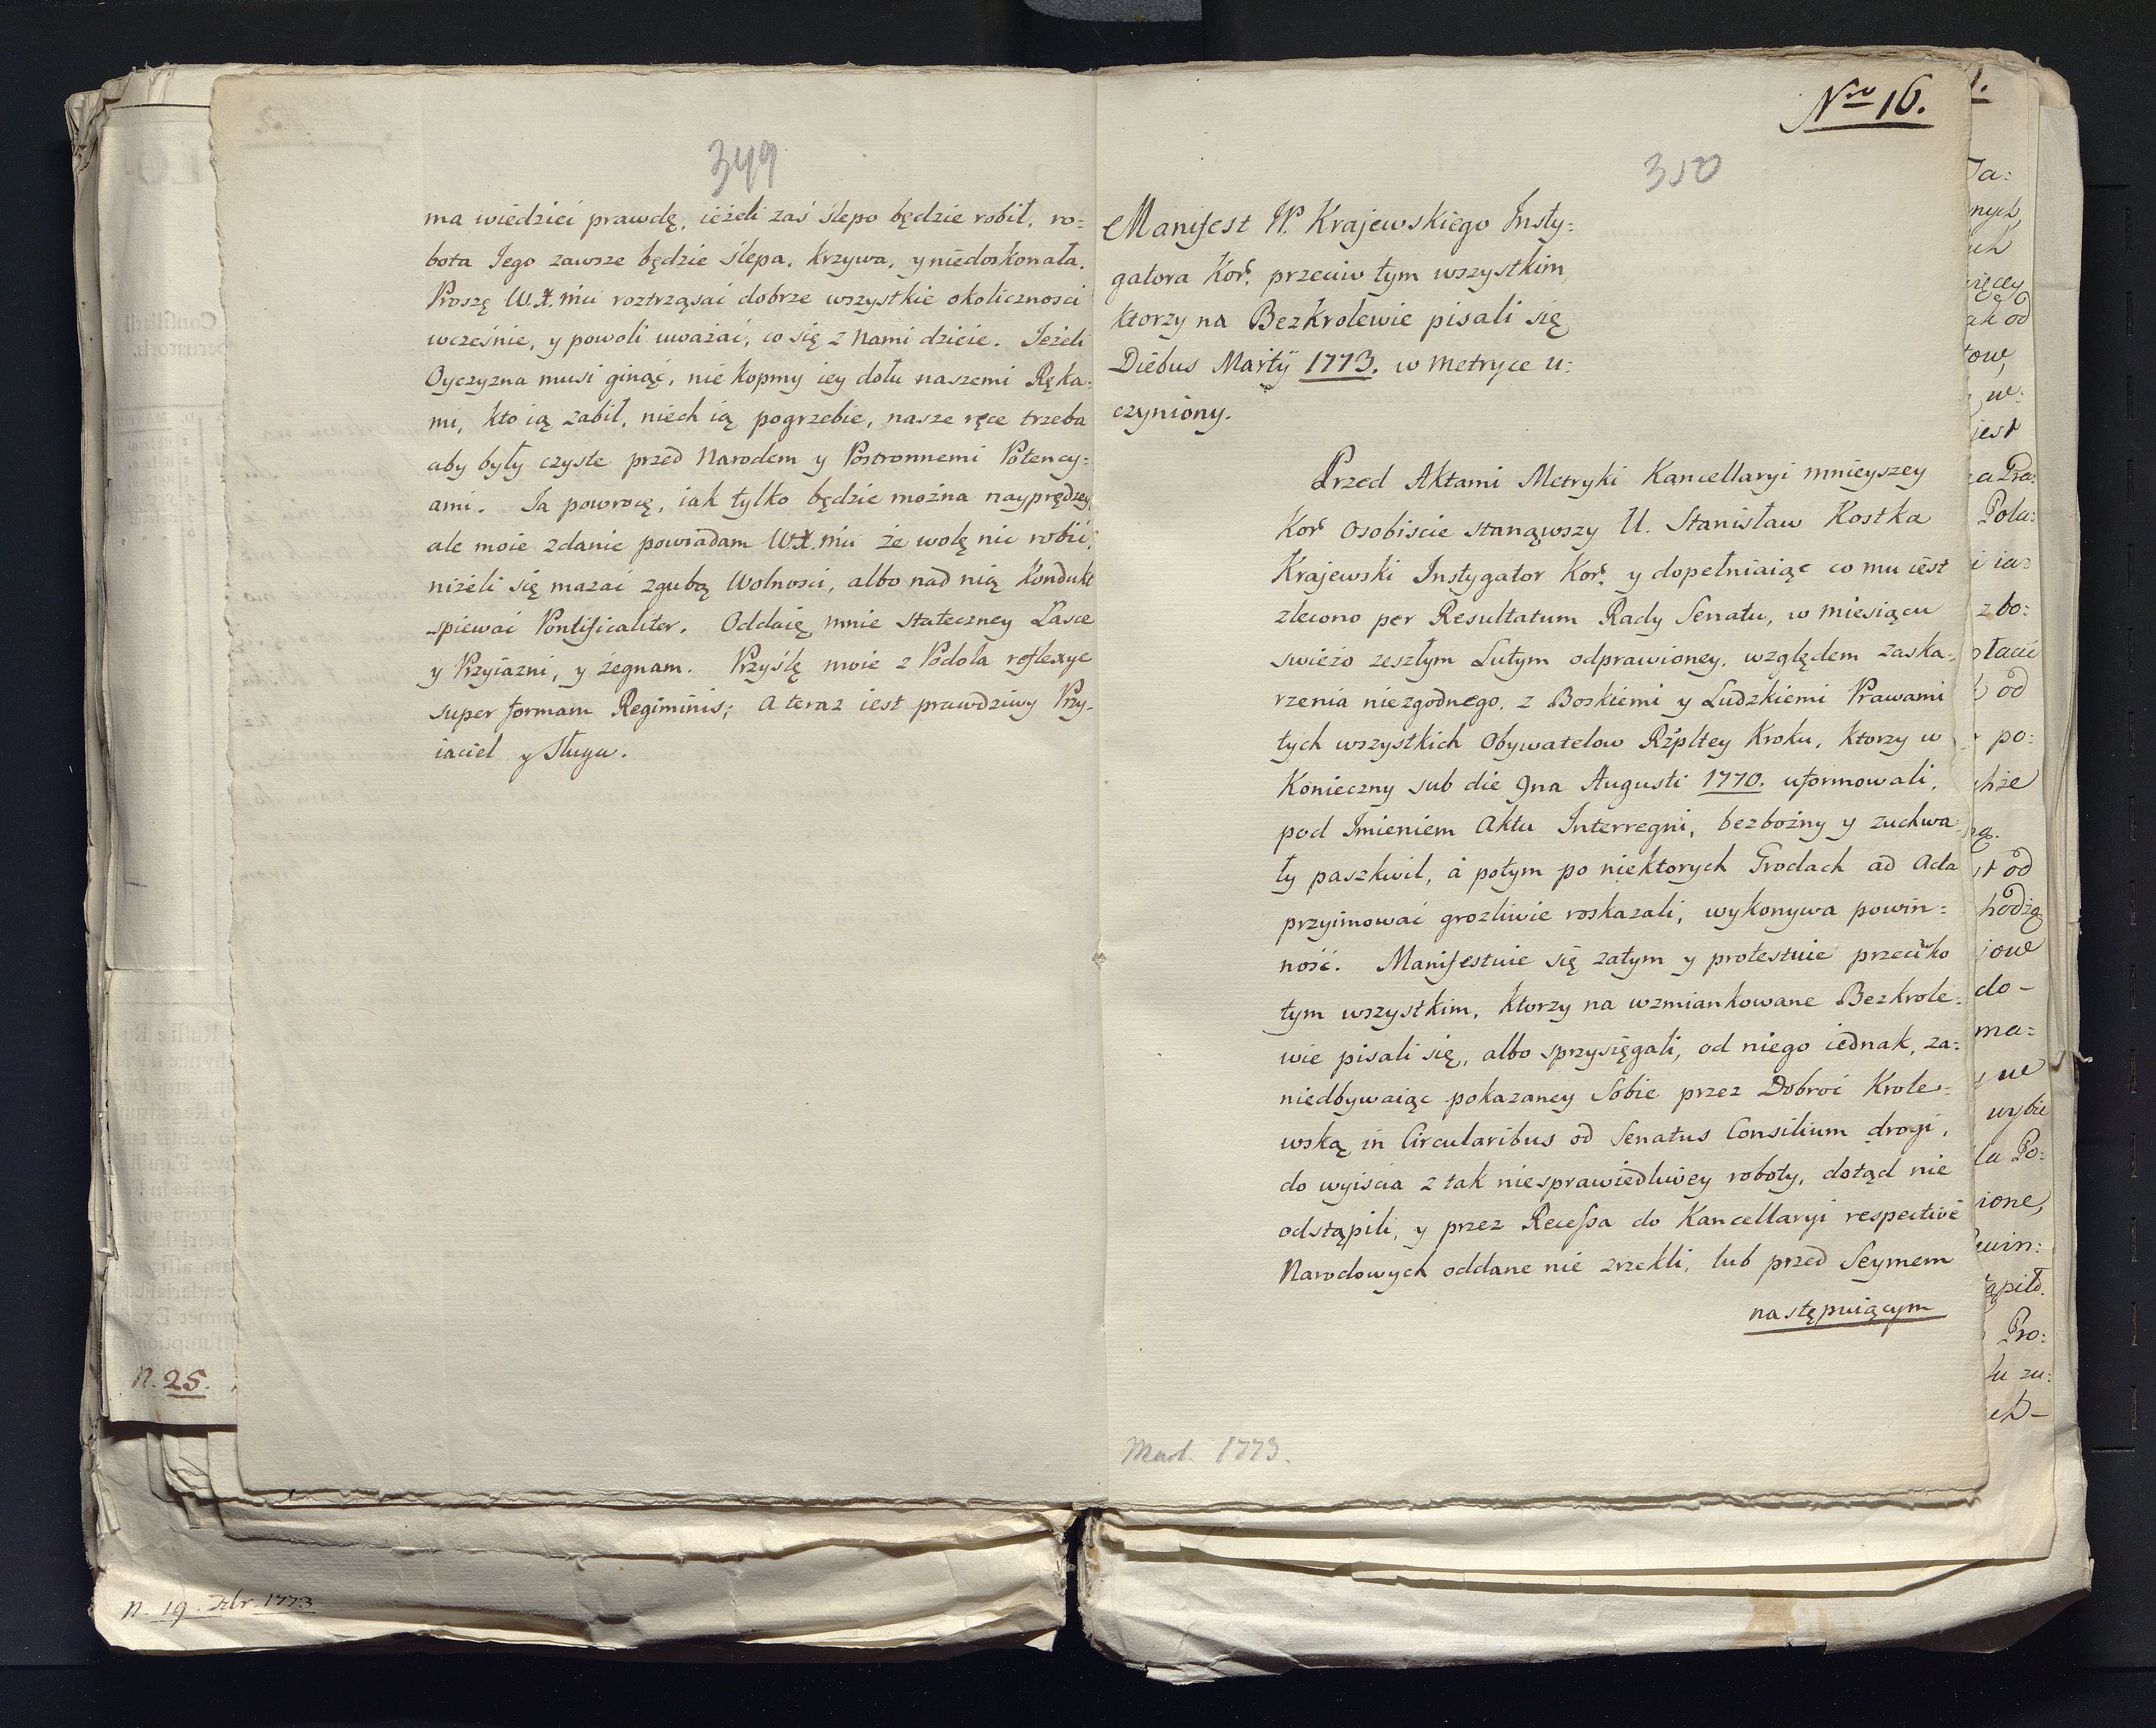 349
ma wiedzieć prawdę, ieżeli zaś ślepo będzie robił, ro=
bota Jego zawsze będzie ślepa, krzywa, y niedoskonała.
Proszę W.X.Mci roztrząsać dobrze wszystkie okolicznosci
wcześnie, y powoli uważać, co się z Nami dzieie. Jeżeli
Oyczyzna musi ginąć, nie kopmy iey dołu naszemi Ręka=
mi, kto ią zabił, niech ią pogrzebie, nasze ręce trzeba
aby były czyste przed Narodem y Postronnemi Potency=
ami. Ja powrocę, iak tylko będzie można nayprędzey,
ale moie zdanie powiadam W.X.Mci że wolę nic robić,
niżeli się mazać zgubą Wolnosci, albo nad nią Kondukt
spiewać Pontificaliter. Oddaię mnie stateczney Łasce
y Przyiazni, y żegnam. Przyślę moie z Podola reflexye
super formam Regiminis; A teraz iest prawdziwy Przy=
iaciel y Sługa.
N. 25.
N. 19. Xbr. 1773
Nro 16.
350
Manifest W. Krajewskiego Insty=
gatora Kor. przeciw tym wszystkim,
ktorzy na BezKrolewie pisali się
Diebus Martij 1773. w Metryce u=
czyniony.
Przed Aktami Metryki Kancellaryi mnieyszey
Kor Osobiscie stanąwszy U. Stanisław Kostka
Krajewski Instygator Kor. y dopełniaiąc co mu iest
zlecono per Resultatum Rady Senatu, w miesiącu
swieżo zeszłym Lutym odprawioney, względem zaska=
rzenia niezgodnego, z Boskiemi y Ludzkiemi Prawami
tych wszystkich Obywatelow Rzpltey Kroku, ktorzy w
Konieczny sub die 9na Augusti 1770. uformowali,
pod Imieniem Aktu Interregni, bezbożny y zuchwa=
ły paszkwil, á potym po niektorych Grodach ad Acta
przyimować grozliwie roskazali, wykonywa powin=
ność. Manifestuie się zatym y protestuie przeciwko
tym wszystkim, ktorzy na wzmiankowane Bezkrole=
wie pisali się, albo sprzysięgali, od niego iednak, za=
niedbywaiąc pokazaney Sobie przez Dobroć Krole=
wską in Circularibus od Senatus Consilium drogi,
do wyiscia z tak niesprawiedliwey roboty, dotąd nie
odstąpili, y przez Recessa do Kancellaryi respective
Narodowych oddane nie zrzekli, lub przed Seymem
następuiącym
Mart. 1773.